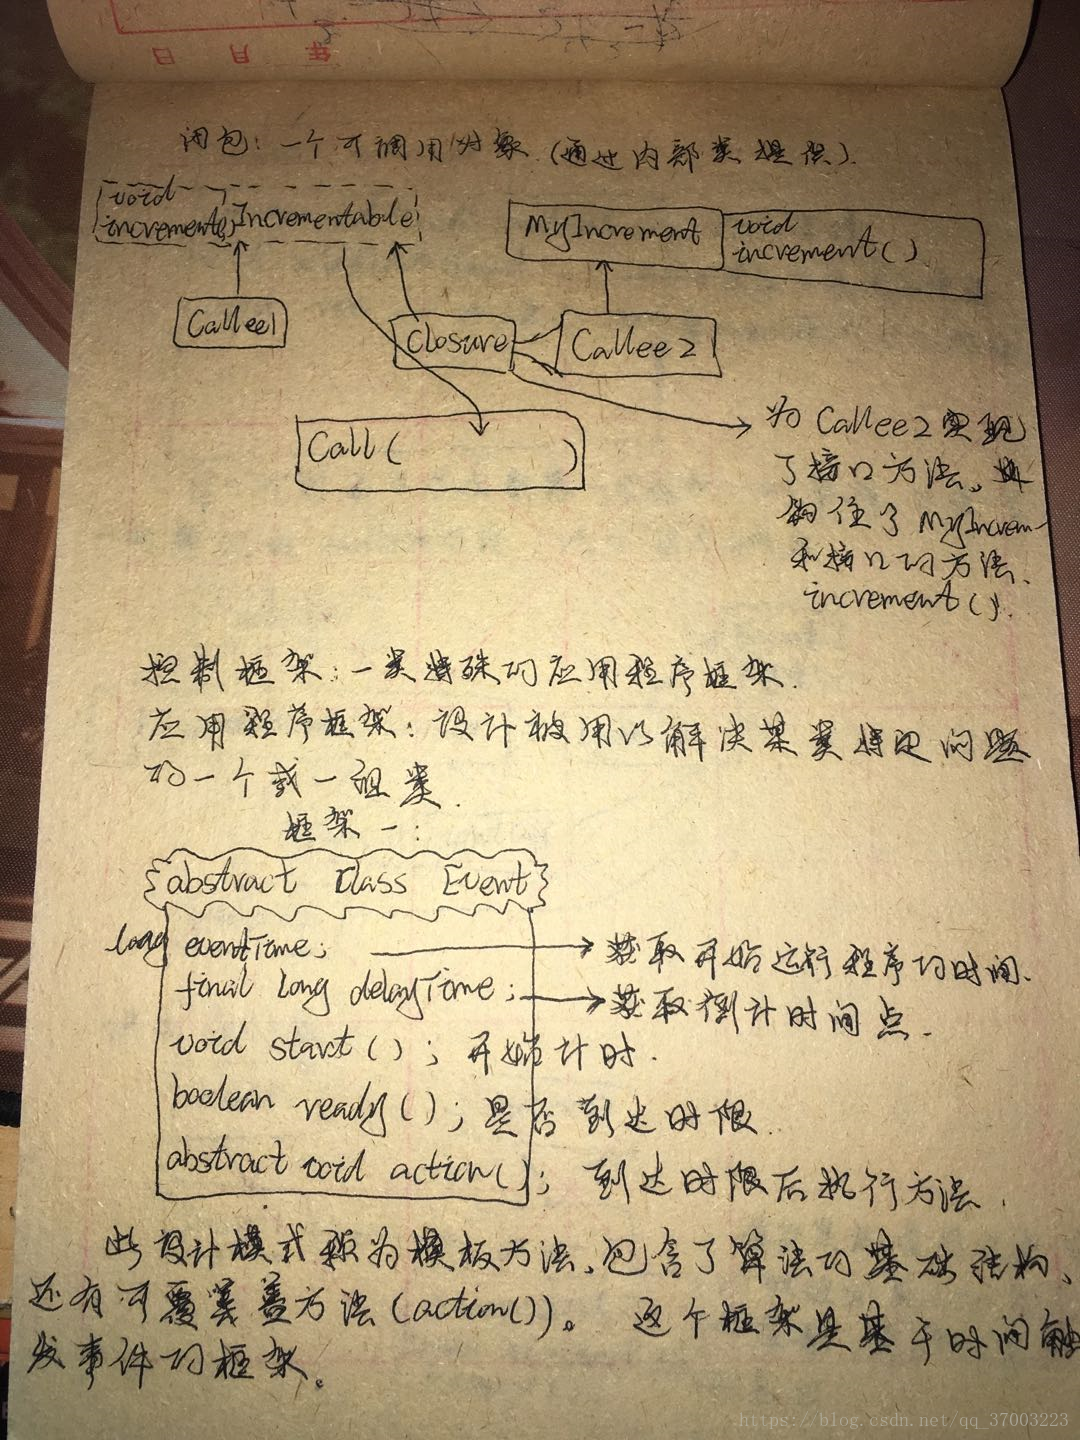 年 月 日
闭包：一个可调用对象（通过内部类提供）.
void
increment() Incrementable
MyIncrement void
increment()
Callee1
Closure
Callee2
Call( )
为 Callee2 实现
了接口方法, 且
钩住了 MyIncrem
和接口的方法.
increment().
控制框架：一类特殊的应用程序框架.
应用程序框架：设计被用以解决某类特定问题
的一个或一组类.
框架一：
abstract class Event
long eventTime; 获取开始运行程序的时间.
final long delayTime; 获取倒计时间点.
void start(); 开始计时.
boolean ready(); 是否到达时限
abstract void action(); 到达时限后执行方法.
此设计模式称为模板方法, 包含了算法的基础结构、
还有可覆盖方法(action())。 这个框架是基于时间触
发事件的框架。
https://blog.csdn.net/qq_37003223